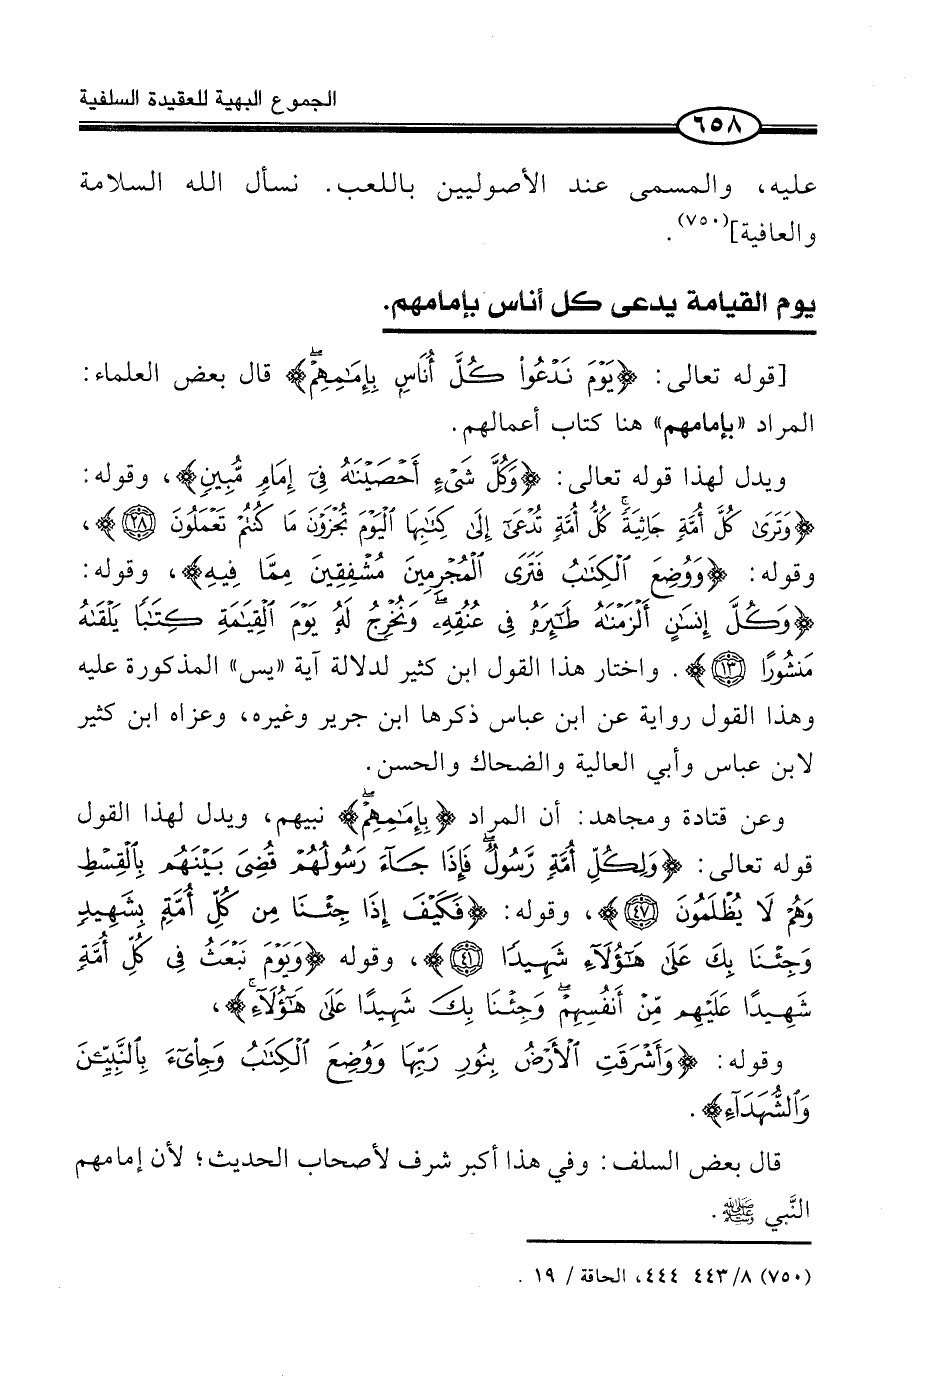 الجموع البهية للعقيدة السلفية
٦٥٨
عليه، والمسمى عند الأصوليين باللعب. نسأل الله السلامة
والعافية](٧٥٠).
يوم القيامة يدعى كل أناس بإمامهم.
[قوله تعالى: ﴿يَوْمَ نَدْعُوا۟ كُلَّ أُنَاسٍۭ بِإِمَـٰمِهِمْۖ﴾ قال بعض العلماء:
المراد «بإمامهم» هنا كتاب أعمالهم.
ويدل لهذا قوله تعالى: ﴿وَكُلَّ شَىْءٍ أَحْصَيْنَـٰهُ فِىٓ إِمَامٍ مُّبِينٍ﴾، وقوله:
﴿وَتَرَىٰ كُلَّ أُمَّةٍ جَاثِيَةًۚ كُلُّ أُمَّةٍ تُدْعَىٰٓ إِلَىٰ كِتَـٰبِهَا ٱلْيَوْمَ تُجْزَوْنَ مَا كُنتُمْ تَعْمَلُونَ ٢٨﴾،
وقوله: ﴿وَوُضِعَ ٱلْكِتَـٰبُ فَتَرَى ٱلْمُجْرِمِينَ مُشْفِقِينَ مِمَّا فِيهِ﴾، وقوله:
﴿وَكُلَّ إِنسَـٰنٍ أَلْزَمْنَـٰهُ طَـٰٓئِرَهُۥ فِى عُنُقِهِۦۖ وَنُخْرِجُ لَهُۥ يَوْمَ ٱلْقِيَـٰمَةِ كِتَـٰبًا يَلْقَىٰهُ
مَنشُورًا ١٣﴾. واختار هذا القول ابن كثير لدلالة آية «يس» المذكورة عليه
وهذا القول رواية عن ابن عباس ذكرها ابن جرير وغيره، وعزاه ابن كثير
لابن عباس وأبي العالية والضحاك والحسن.
وعن قتادة ومجاهد: أن المراد ﴿بِإِمَـٰمِهِمْۖ﴾ نبيهم، ويدل لهذا القول
قوله تعالى: ﴿وَلِكُلِّ أُمَّةٍ رَّسُولٌۖ فَإِذَا جَآءَ رَسُولُهُمْ قُضِىَ بَيْنَهُم بِٱلْقِسْطِ
وَهُمْ لَا يُظْلَمُونَ ٤٧﴾، وقوله: ﴿فَكَيْفَ إِذَا جِئْنَا مِن كُلِّ أُمَّةٍۭ بِشَهِيدٍ
وَجِئْنَا بِكَ عَلَىٰ هَـٰٓؤُلَآءِ شَهِيدًا ٤١﴾، وقوله ﴿وَيَوْمَ نَبْعَثُ فِى كُلِّ أُمَّةٍ
شَهِيدًا عَلَيْهِم مِّنْ أَنفُسِهِمْۖ وَجِئْنَا بِكَ شَهِيدًا عَلَىٰ هَـٰٓؤُلَآءِۚ﴾،
وقوله: ﴿وَأَشْرَقَتِ ٱلْأَرْضُ بِنُورِ رَبِّهَا وَوُضِعَ ٱلْكِتَـٰبُ وَجِا۟ىٓءَ بِٱلنَّبِيِّـۧنَ
وَٱلشُّهَدَآءِ﴾.
قال بعض السلف: وفي هذا أكبر شرف لأصحاب الحديث؛ لأن إمامهم
النَّبي ﷺ.
(٧٥٠) ٨/ ٤٤٣ ٤٤٤، الحاقة/ ١٩.